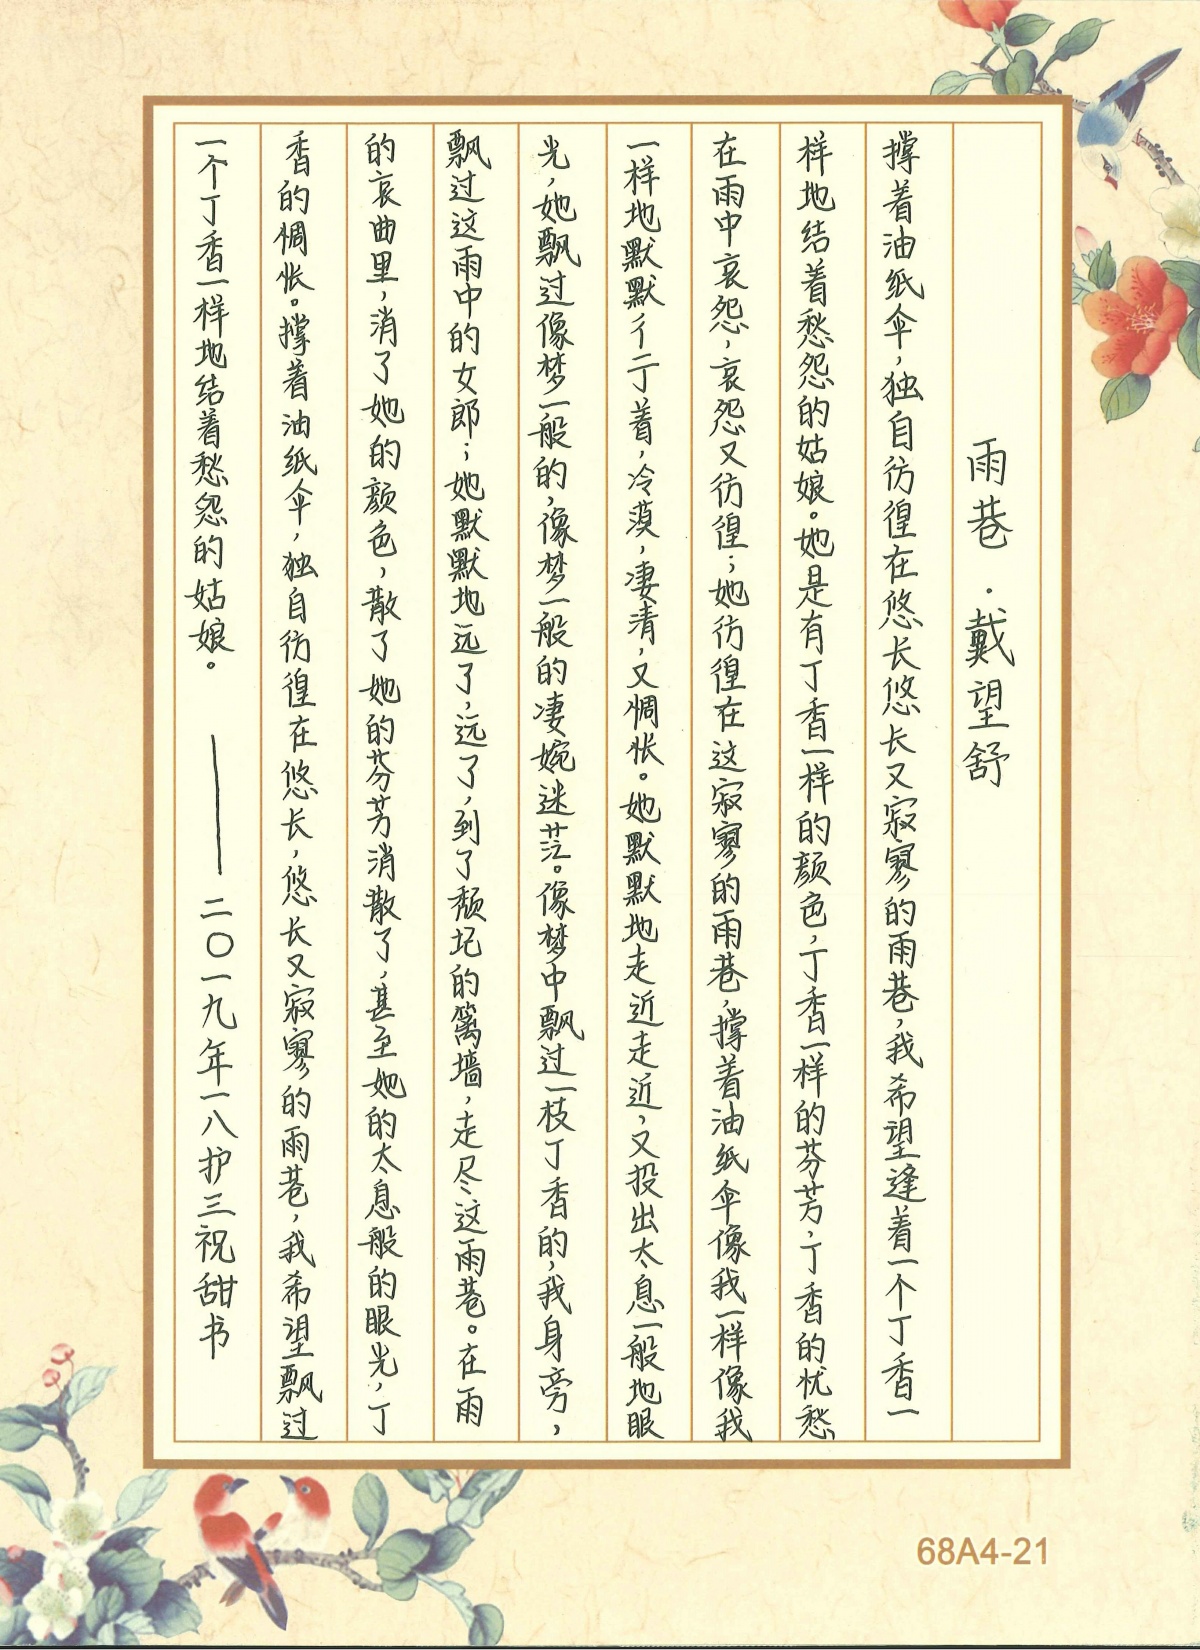 雨巷·戴望舒
撑着油纸伞，独自彷徨在悠长悠长又寂寥的雨巷，我希望逢着一个丁香一
样地结着愁怨的姑娘。她是有丁香一样的颜色，丁香一样的芬芳，丁香的忧愁
在雨中哀怨，哀怨又彷徨；她彷徨在这寂寥的雨巷，撑着油纸伞像我一样像我
一样地默默彳亍着，冷漠，凄清，又惆怅。她默默地走近走近，又投出太息一般地眼
光，她飘过像梦一般的，像梦一般的凄婉迷茫。像梦中飘过一枝丁香的，我身旁，
飘过这雨中的女郎；她默默地远了，远了，到了颓圮的篱墙，走尽这雨巷。在雨
的哀曲里，消了她的颜色，散了她的芬芳消散了，甚至她的太息般的眼光，丁
香的惆怅。撑着油纸伞，独自彷徨在悠长，悠长又寂寥的雨巷，我希望飘过
一个丁香一样地结着愁怨的姑娘。——二〇一九年一八护三祝甜书
68A4-21